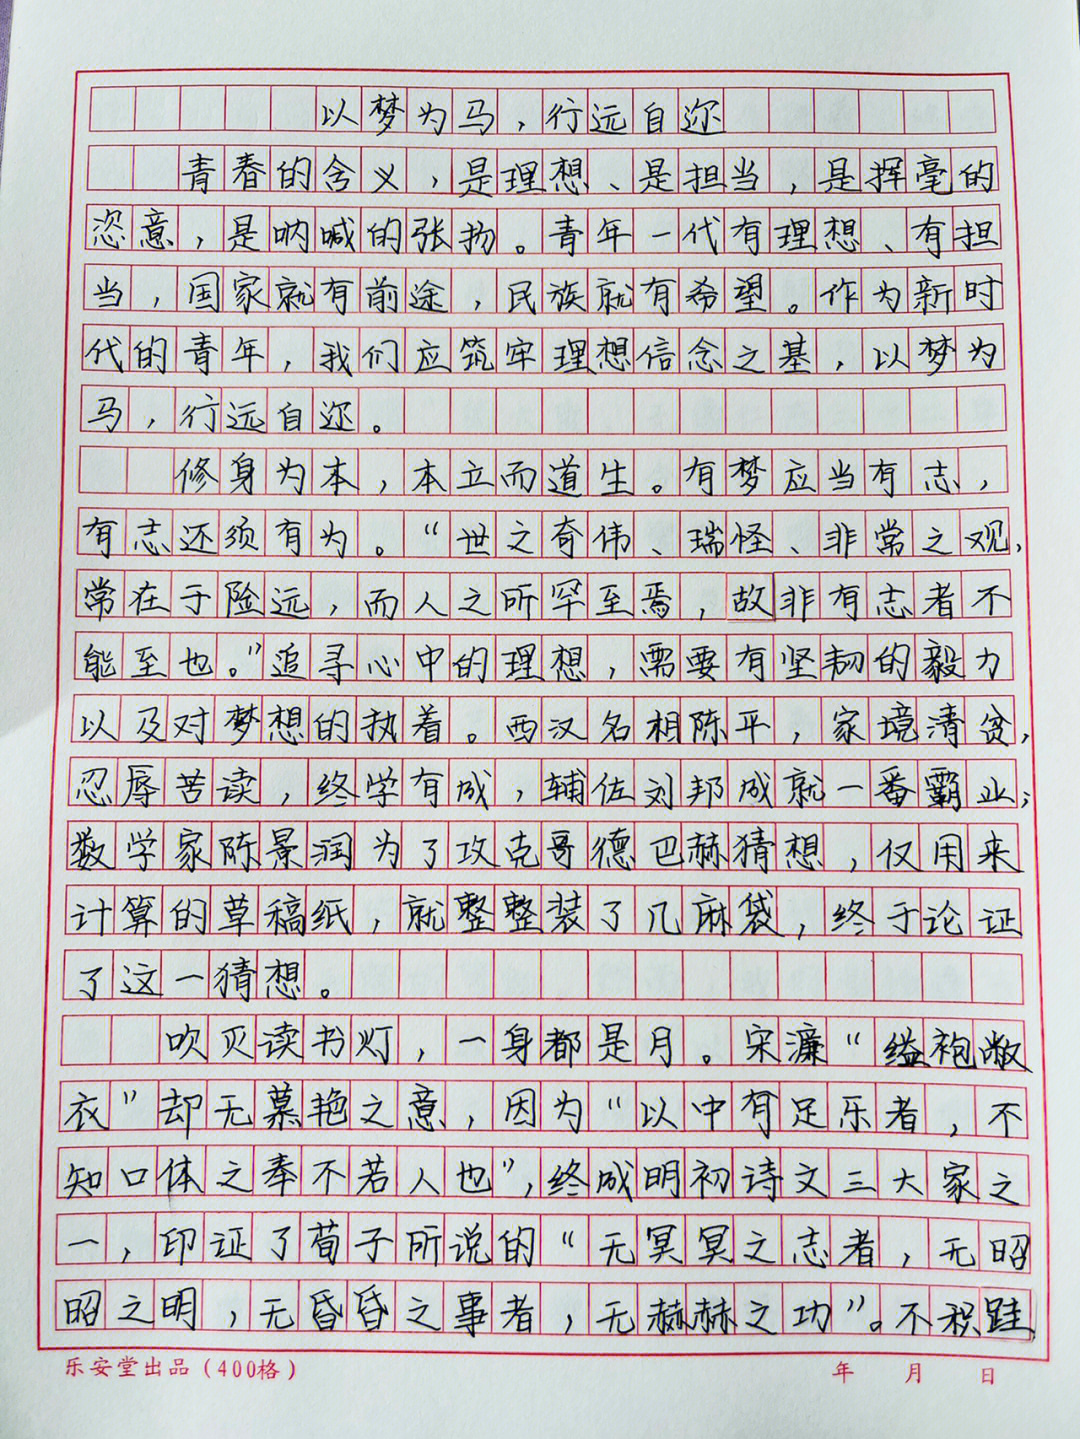 以梦为马，行远自迩
青春的含义，是理想、是担当，是挥毫的
恣意，是呐喊的张扬。青年一代有理想、有担
当，国家就有前途，民族就有希望。作为新时
代的青年，我们应筑牢理想信念之基，以梦为
马，行远自迩。
修身为本，本立而道生。有梦应当有志，
有志还须有为。“世之奇伟、瑰怪、非常之观，
常在于险远，而人之所罕至焉，故非有志者不
能至也。”追寻心中的理想，需要有坚韧的毅力
以及对梦想的执着。西汉名相陈平，家境清贫，
忍辱苦读，终学有成，辅佐刘邦成就一番霸业；
数学家陈景润为了攻克哥德巴赫猜想，仅用来
计算的草稿纸，就整整装了几麻袋，终于论证
了这一猜想。
吹灭读书灯，一身都是月。宋濂“缊袍敝
衣”却无慕艳之意，因为“以中有足乐者，不
知口体之奉不若人也”，终成明初诗文三大家之
一，印证了荀子所说的“无冥冥之志者，无昭
昭之明，无昏昏之事者，无赫赫之功”。不积跬
乐安堂出品（400格） 年 月 日